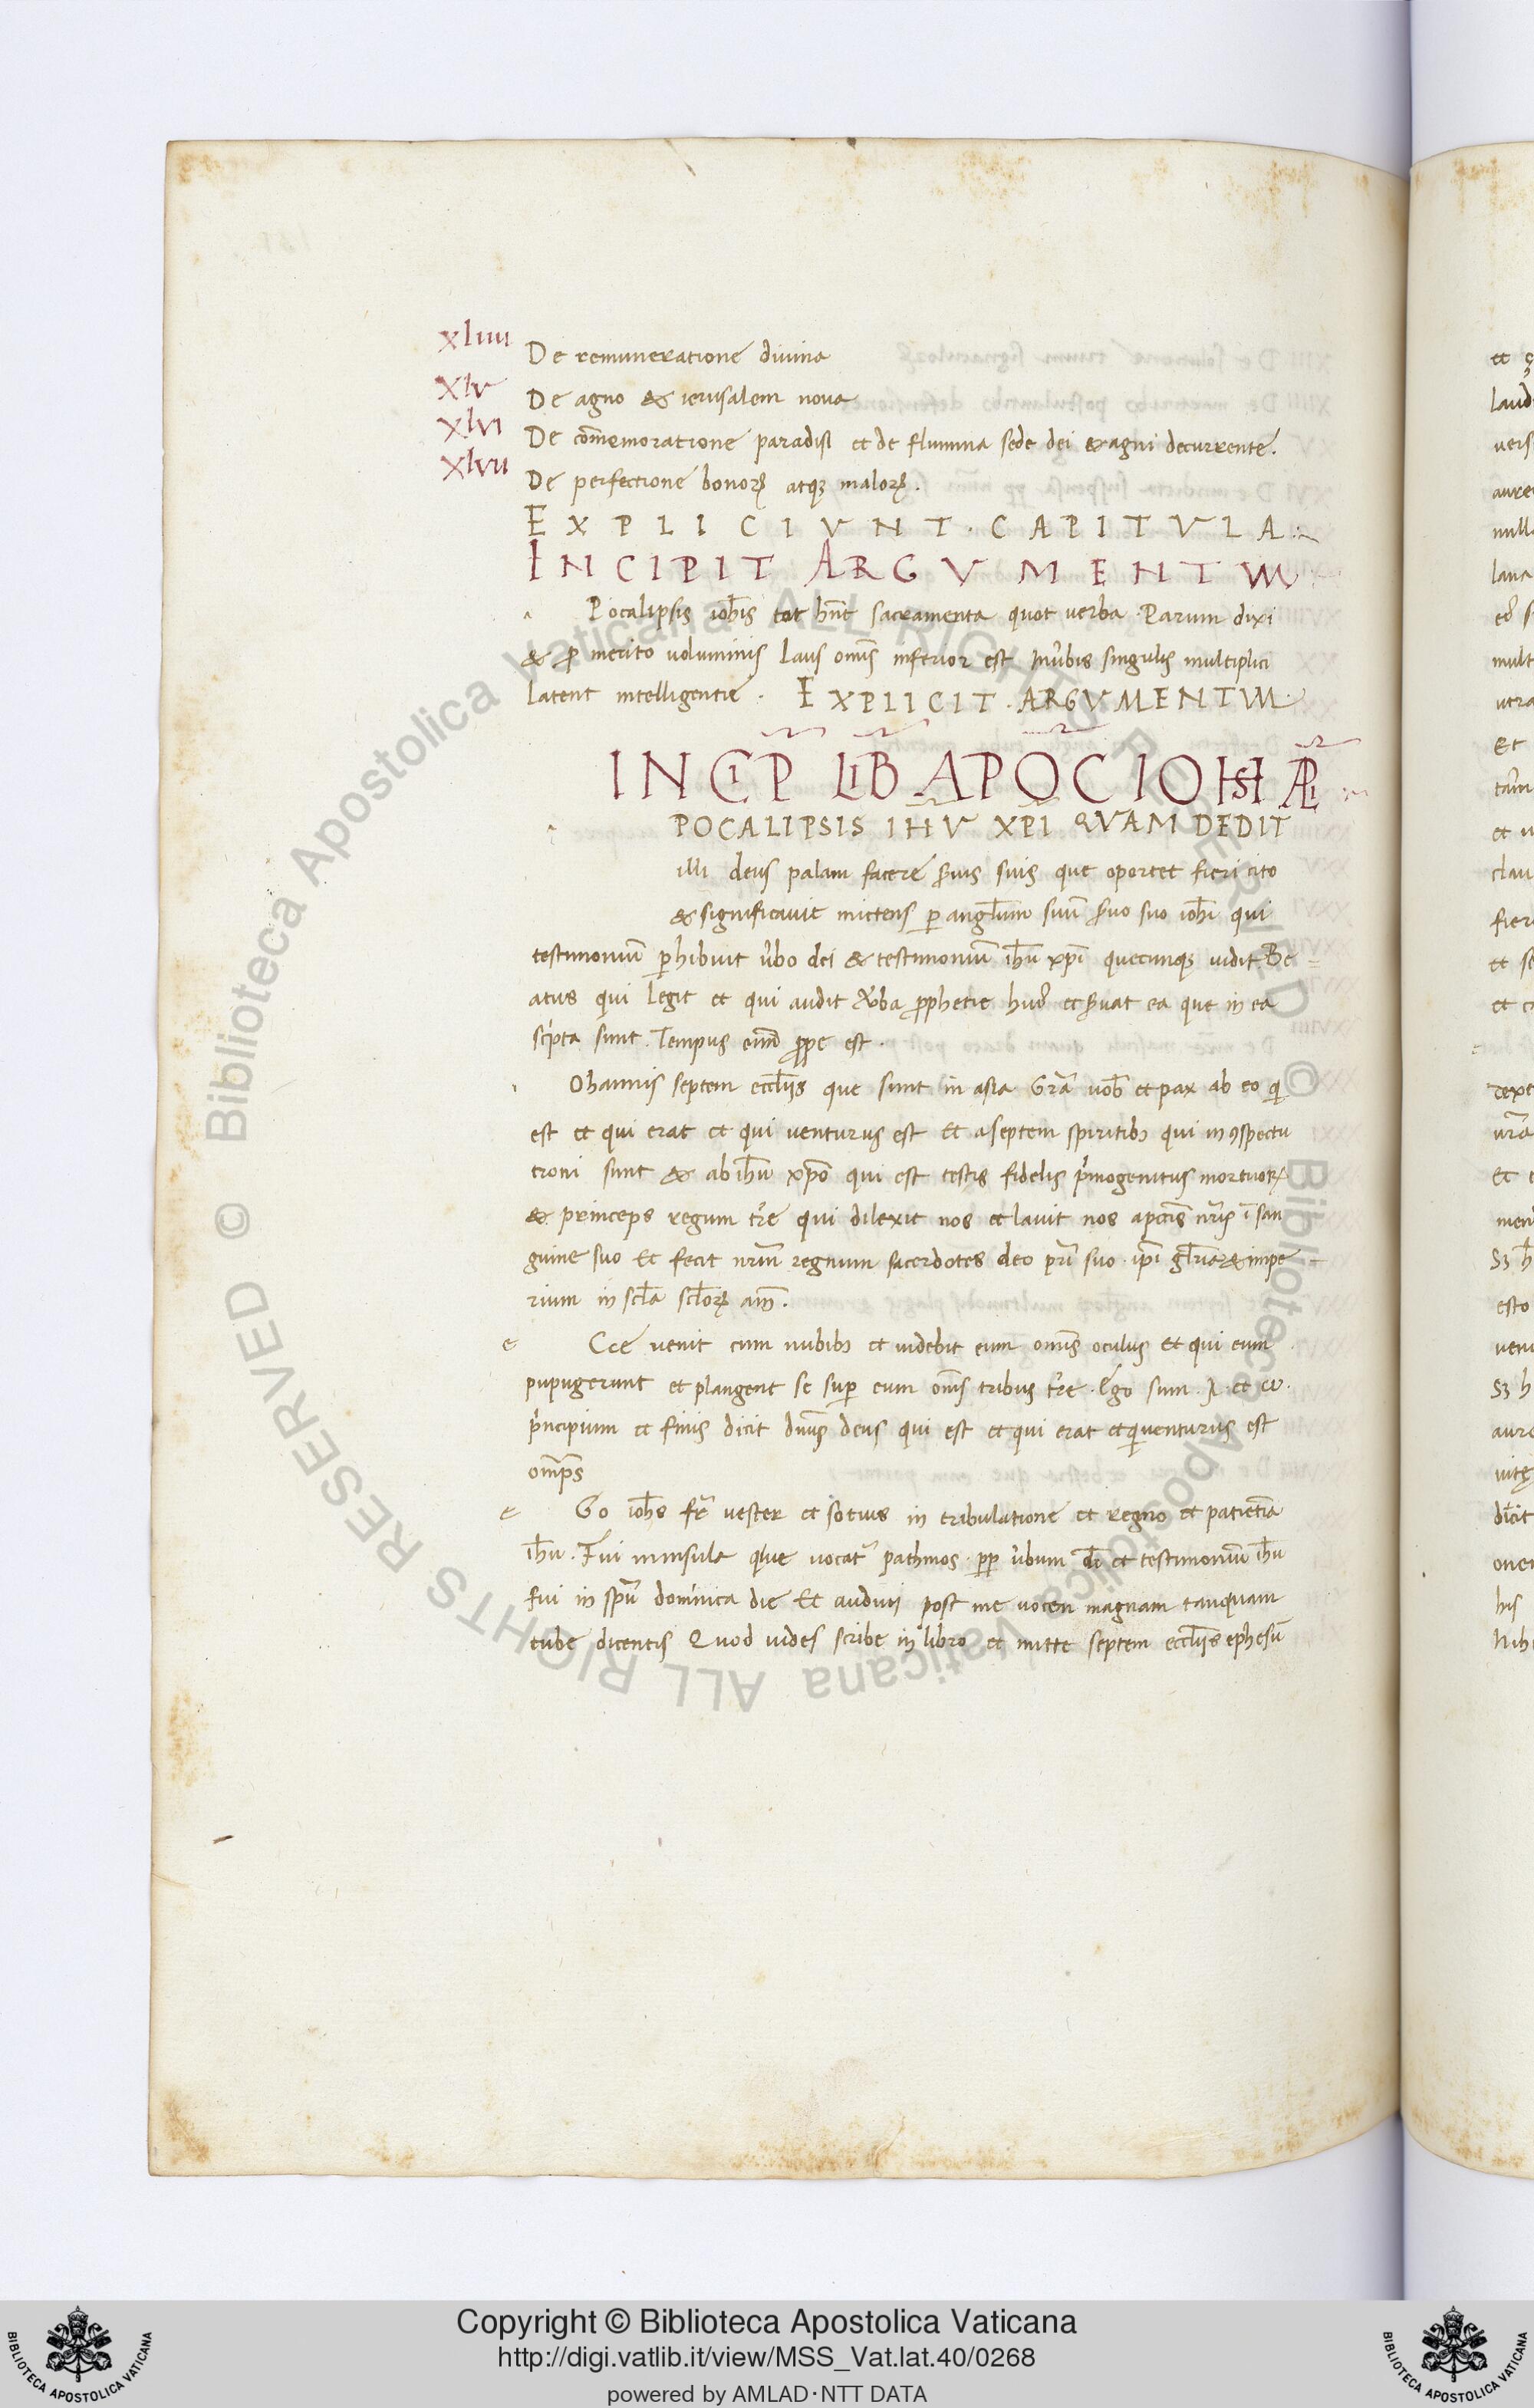 xliiii De remuneratione divina
xlv De agno & ierusalem nova
xlvi De com̄emoratione paradisi et de flumina sede dei & agni decurrente.
xlvii De perfectione bonoꝝ atqꝫ maloꝝ.
EXPLICIVNT · CAPITVLA :
INCIPIT ARGVMENTVM
a Pocalipsis ioh̄is tot hn̄t sacramenta quot verba · Parum dixi
& ꝓ merito voluminis laus om̄is inferior est Inu̇bis singulis multiplici
latent intelligentie · EXPLICIT · ARGVMENTVM
INCIP̄ LIB̄ APŌC IOHIS APLI
a POCALIPSIS IHV XPI QVAM DEDIT
illi deus palam facere s̄uis suis que oportet fieri cito
& significavit mittens ꝑ angl̄um suū s̄uo suo ioh̄i qui
testimoniū ꝑhibuit u̇bo dei & testimoniū ih̄u xp̄i quecunqꝫ vidit · Be
atus qui legit et qui audit u̇ba ꝓphetie hui᷒ et s̄uat ea que in ea
scripta sunt. Tempus eni̅ ꝓpe est.
i Ohannis septem eccl̄iis que sunt in asia Gr̄a vob̄ et pax ab eo qi
est et qui erat et qui venturus est Et a septem spiritibꝫ qui in ꝯspectu
troni sunt & ab ih̄u xp̄o qui est testis fidelis pͥmogenitus mortuoꝝ
& princeps regum tr̄e qui dilexit nos et lavit nos a pcc̄is nr̄is ī san
guine suo Et fecit nr̄m regnum sacerdotes deo pr̄i suo · ip̄i gl̄ria & impe
rium in scl̄a scl̄oꝝ am̄.
e Cce venit cum nubibꝫ et videbit eum om̄is oculus et qui eum
pupugerunt et plangent se suꝑ eum om̄s tribus tr̄e · Ego sum · λ · et ω ·
pͥncipium et finis dicit dn̄us deus qui est et qui erat et qi venturus est
om̄ps
e Go ioh̄s fr̄ vester et sotius in tribulatione et regno et patiētia
ih̄u · Fui in insula que vocat᷑ pathmos · ꝓp u̇bum d̄i et testimoniū ih̄u
fui in sp̄u dominica die Et audivi post me vocen magnam tanquam
tube dicentis Quod vides scribe in libro et mitte septem eccl̄iis ephesū
Copyright © Biblioteca Apostolica Vaticana
http://digi.vatlib.it/view/MSS_Vat.lat.40/0268
powered by AMLAD·NTT DATA